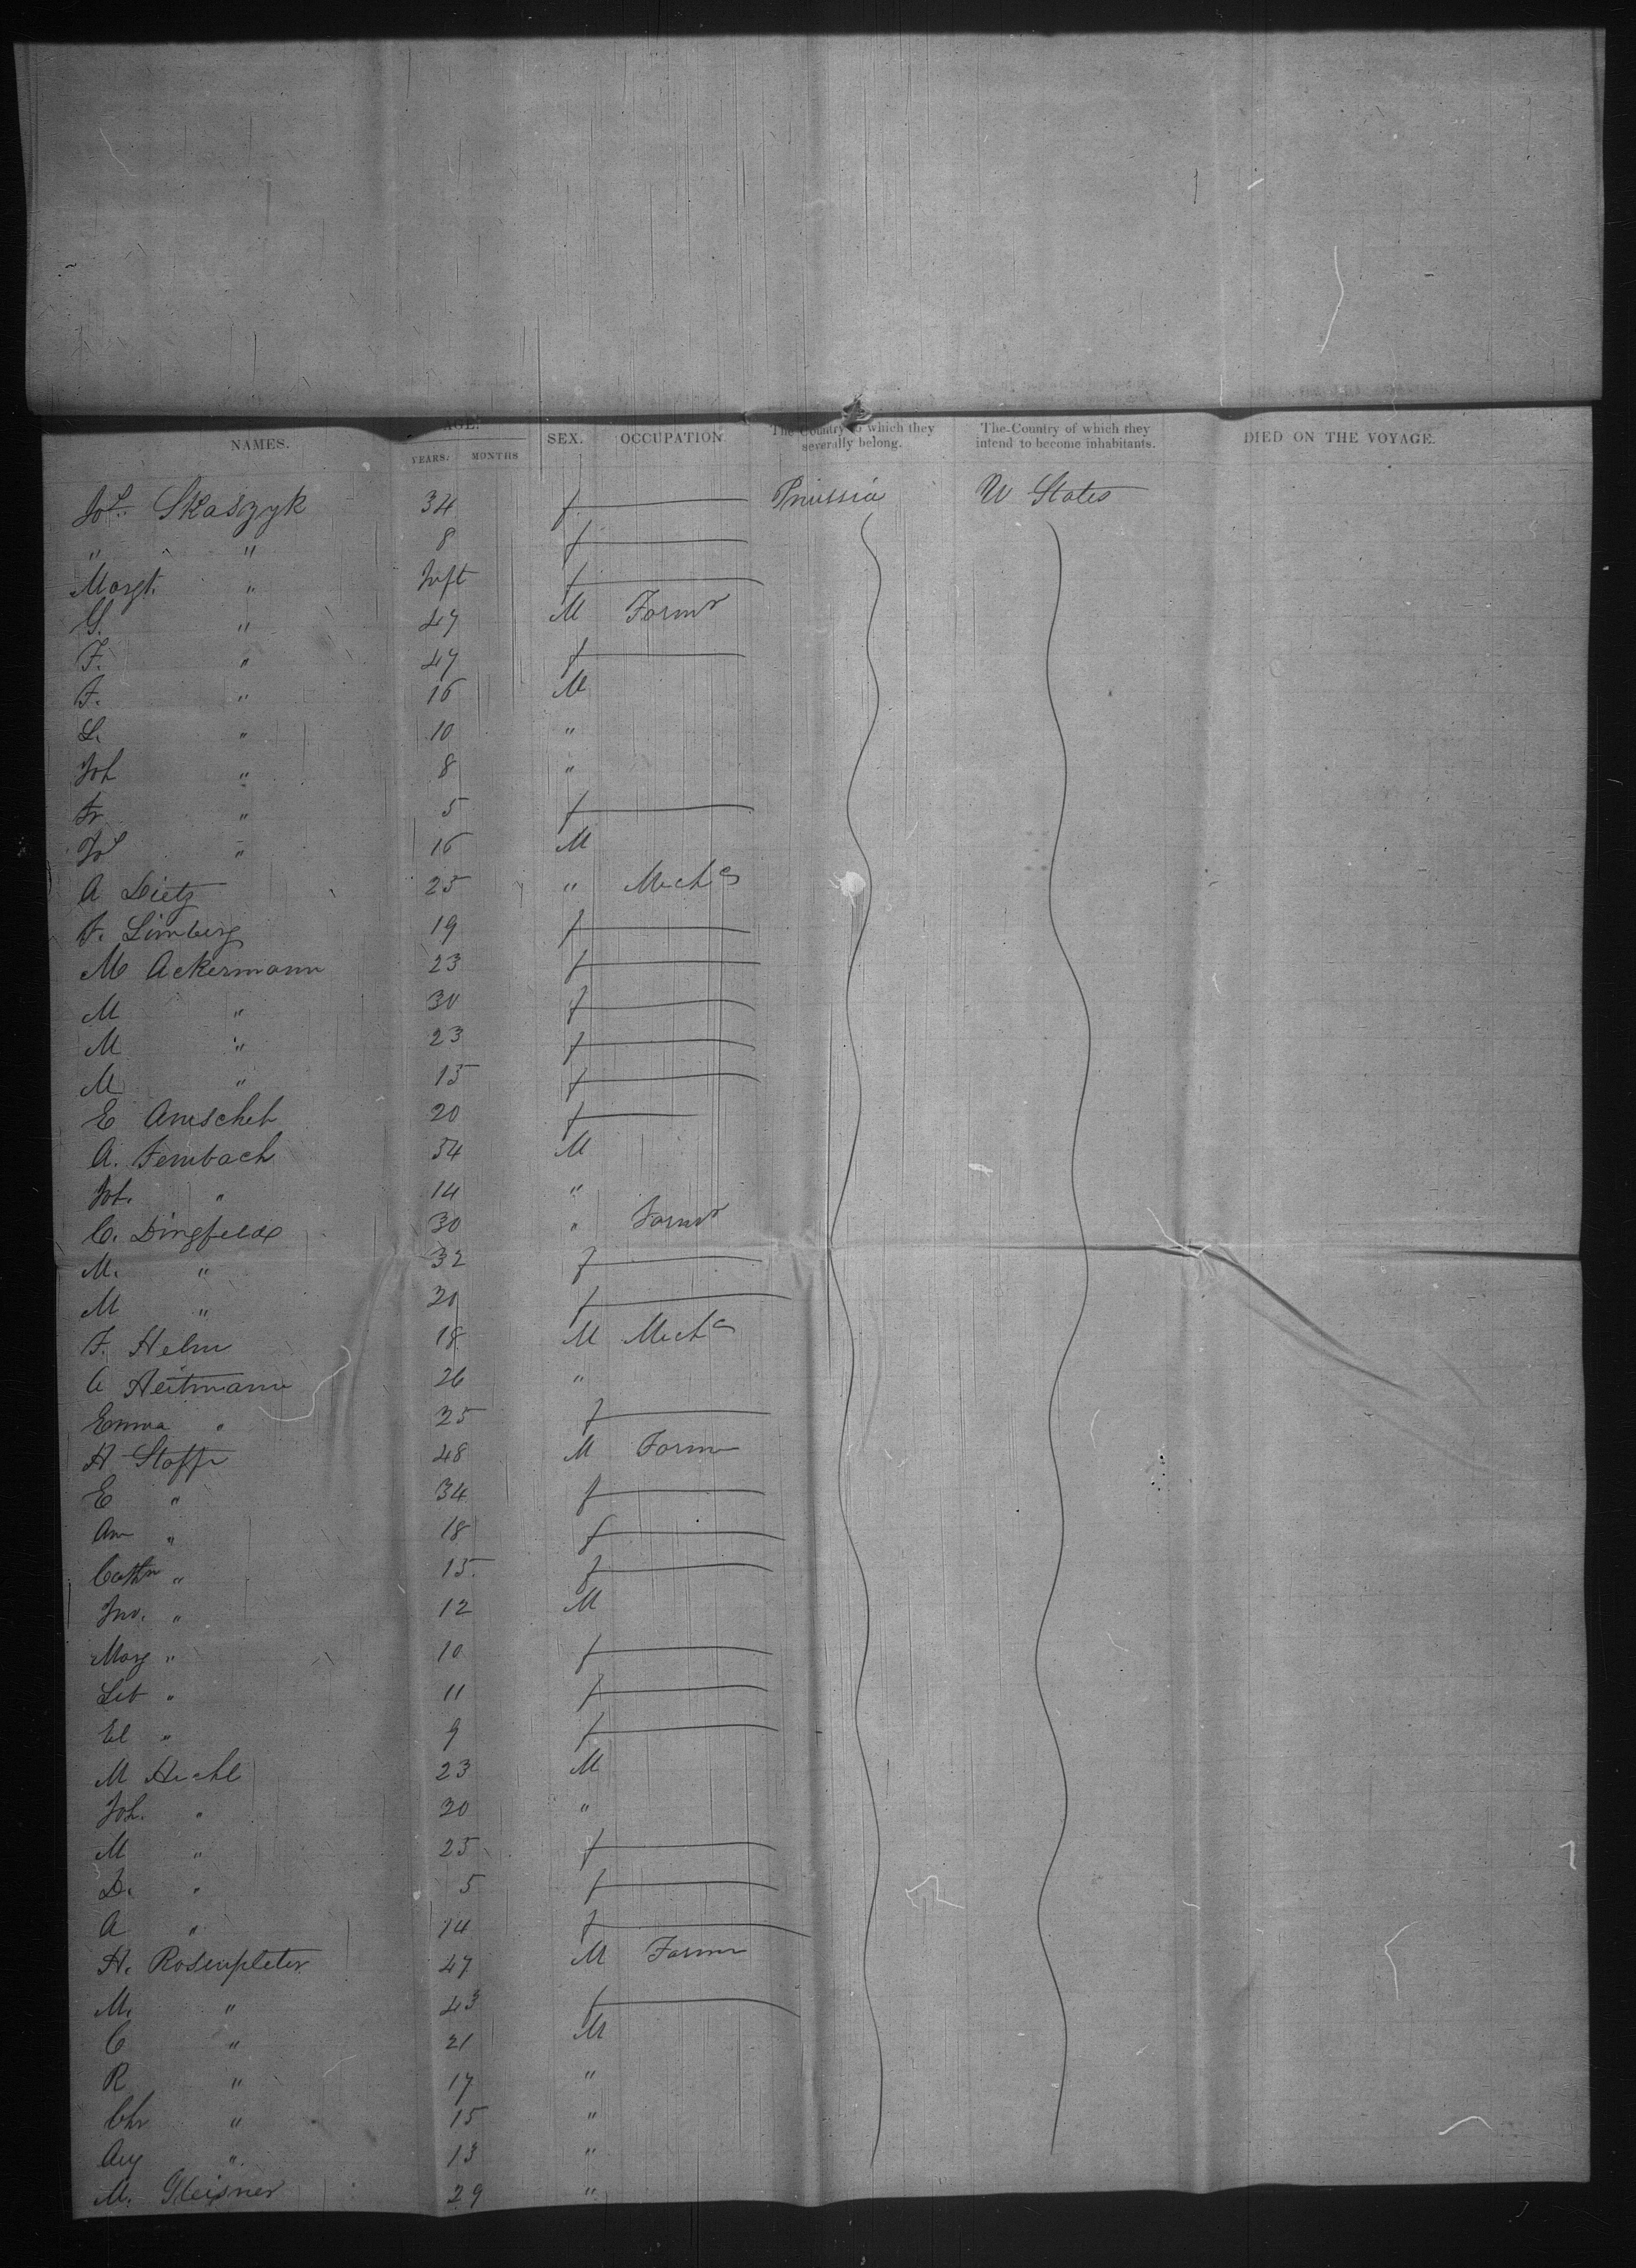 NAMES. AGE. YEARS. MONTHS SEX. OCCUPATION. The Country of which they severally belong. The Country of which they intend to become inhabitants. DIED ON THE VOYAGE.
Jos. Skaszyk 34 f Prussia U States
" " 8 f
Margt. " Inft f
G. " 47 M Farmr
F. " 47 f
F. " 16 M
L. " 10 "
Joh " 8 "
Fr " 5 f
Jos " 16 M
A Dietz 25 " Mechc
F. Limberg 19 f
M Ackermann 23 f
M " 30 f
M " 23 f
M " 15 f
E 20 f
A. Fembach 54 M
Joh. " 14 "
C. Dingfeld 30 " Farmr
M. " 32 f
M " 20 f
F. Helm 18 M Mechc
A Heitmann 26 "
Emma " 25 f
H Stapp 48 M Farm
E " 34 f
An " 18 f
Cathn " 15 f
Jno. " 12 M
Marg " 10 f
Lib " 11 f
El " 9 f
M Hechl 23 M
Joh. " 20 "
M " 25 f
D. " 5 f
A " 14 f
H. Rosenpleter 47 M Farmr
M. " 43 f
C " 21 M
R " 17 "
Chr " 15 "
Aug " 13 "
M. Gleisner 29 "